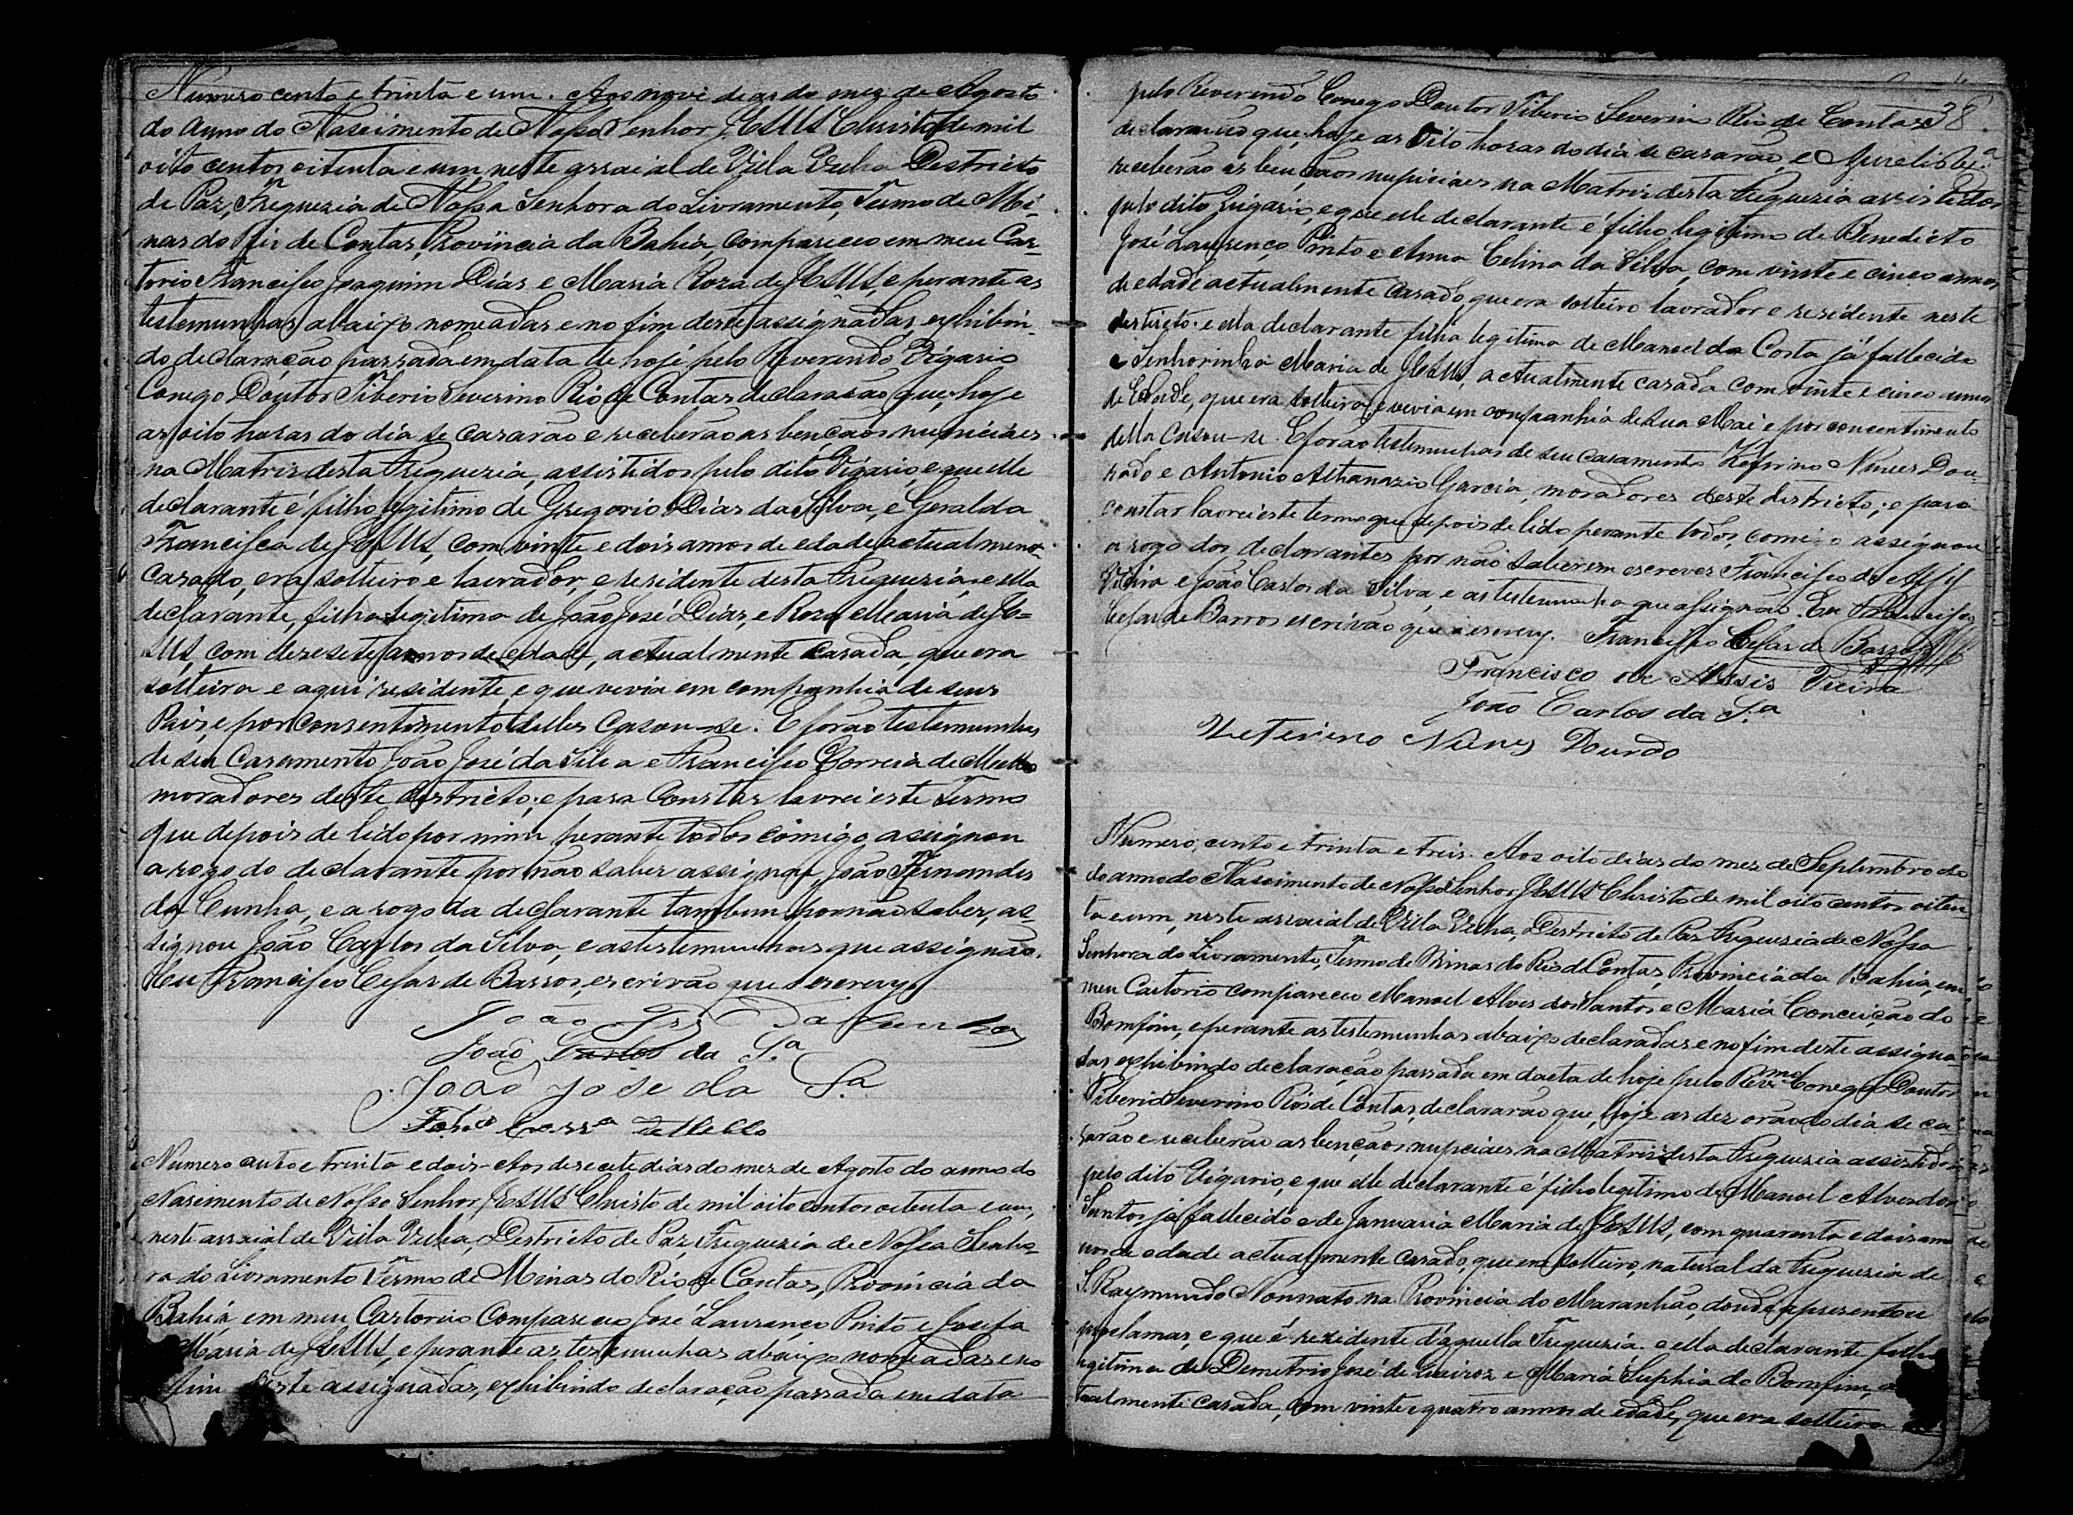 Numero cento e trinta e um. Aos nove dias do mez de Agosto
do anno do Nascimento de Nosso Senhor JESUS Christo de mil
oito centos oitenta e um neste arraial de Villa Velha Districto
de Paz, Freguezia de Nossa Senhora do Livramento, Termo de Mi-
nas do Rio de Contas, Provincia da Bahia, compareceo em meu Car-
torio Francisco Joaquim Dias e Maria Roza de JESUS, e perante as
testemunhas abaixo nomeadas e no fim deste assignadas, exhibin-
do declaração passada em data de hoje pelo Reverendo Vigario
Conego Doutor Tiberio Severino Rio de Contas declararão que, hoje
as oito horas do dia se casarão e receberão as bençãos nupciaes
na Matriz desta Freguezia, assistidos pelo dito Vigario, e que elle
declarante é filho legitimo de Gregorio Dias da Silva, e Geralda
Francisca de JESUS, com vinte e dois annos de edade, actualmente
casado, era solteiro e lavrador, e residente desta Freguezia, e ella
declarante, filha legitima de João José Dias, e Roza Maria de JE=
SUS, com desesete annos de edade, actualmente casada, que era
solteira e aqui residente, e que vivia em companhia de seus
Pais, e por consentimento delles casou-se. E forão testemunhas
de seu casamento João José da Silva e Francisco Correia de Mello
moradores deste districto; e para constar lavrei este Termo
que depois de lido por mim perante todos comigo assignou
a rogo do declarante por não saber assignar, João Fernandes
da Cunha, e a rogo da declarante tambem por não saber, as-
signou João Carlos da Silva, e as testemunhas que assignão.
Eu Francisco Cesar de Barros, escrivão que escrevy
João Frz Da Cunha
João Carlos da S.a
João Jose da S.a
Corr.a de Mello
Numero cento e trinta e dois - Aos desesete dias do mez de Agosto do anno do
Nascimento de Nosso Senhor JESUS Christo de mil oito centos oitenta e um,
neste arraial de Villa Velha, Districto de Paz, Freguezia de Nossa Senho-
ra do Livramento Termo de Minas do Rio de Contas, Provincia da
Bahia, em meu Cartorio compareceo José Laurenço Pinto e Josefa
Maria de JESUS, e perante as testemunhas abaixo nomeadas e no
fim deste assignadas, exhibindo declaração passada em data
38
pelo Reverendo Conego Doutor Tiberio Severino Rio de Contas
declararão que, hoje as oito horas do dia se casarão, e
receberão as bençãos nupciaes na Matriz desta Freguezia assistidos
pelo dito Vigario, e que elle declarante é filho legitimo de Benedicto
José Laurenço Pinto e Anna Celina da Silva, com vinte e cinco annos,
de edade actualmente casado, que era solteiro lavrador e residente neste
districto: e ella declarante filha legitima de Manoel da Costa já fallecido
e Senhorinha Maria de JESUS, actualmente casada com vinte e cinco annos
de edade, que era solteira, e vivia em companhia de sua Mãi e por consentimento
della casou-se. E forão testemunhas de seu casamento Zeferino Nunes Dou-
rado e Antonio Athanazio Garcia, moradores deste districto; e para
constar lavrei este termo que depois de lido perante todos, comigo assignou
a rogo dos declarantes por não saberem escrever Francisco de Assis
Vieira e João Carlos da Silva, e as testemunhas que assignão. Eu Francisco
Cesar de Barros escrivão que escrevy. Francisco Cesar de Barros
Francisco de Assis Vieira
João Carlos da S.a
Zeferino Nunes Durado
Numero, cento e trinta e treis. Aos oito dias do mez de Septembro do
do anno do Nascimento de Nosso Senhor JESUS Christo de mil oito centos oiten
ta e um, neste arraial de Villa Velha, Districto de Paz Freguezia de Nossa
Senhora do Livramento, Termo de Minas do Rio de Contas, Provincia da Bahia, em
meu Cartorio compareceo Manoel Alves dos Santos e Maria Conceição do
Bomfim, e perante as testemunhas abaixo declaradas e no fim deste assigna
das exhibindo declaração passada em dacta de hoje pelo Revmo Conego Doutor
Tiberio Severino Rio de Contas, declararão que, hoje as dez oras do dia se ca-
sarão e receberão as bençãos nupciaes na Matriz desta Freguezia assistidos
pelo dito Vigario, e que elle declarante é filho legitimo de Manoel Alves dos
Santos já fallecido e de Januaria Maria de JESUS, com quarenta e dois an
nos de edade actualmente casado, que era solteiro, natural da Freguezia de
S. Raymundo Nonnato na Provincia do Maranhão, donde apresentou
proclamas, e que é residente d'aquella Freguezia. e ella declarante filha
legitima de Demetrio José de Queiroz e Maria Suphia do Bomfim, a
tualmente casada, com vinte e quatro annos de edade, que era solteira